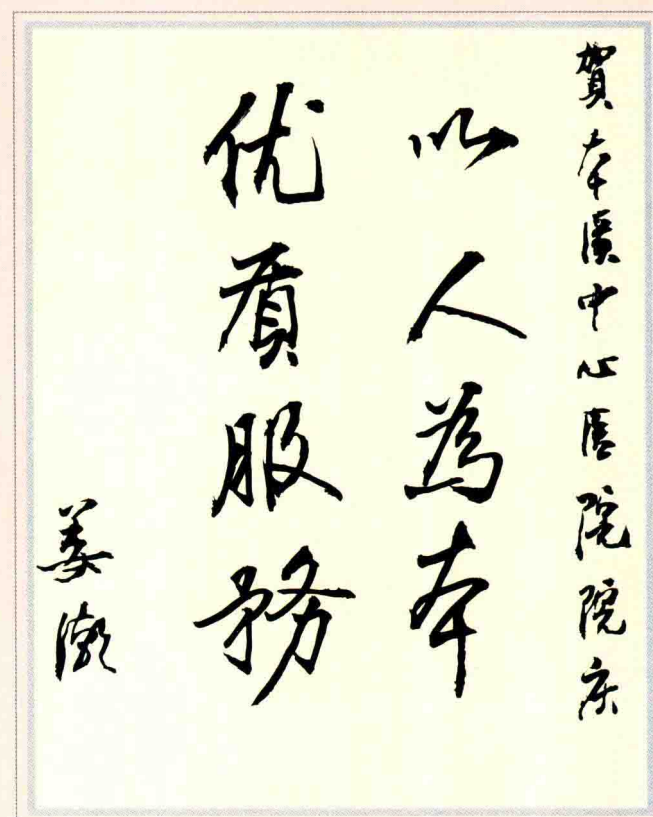 賀本溪中心医院院庆
以人為本
优质服務
姜潮